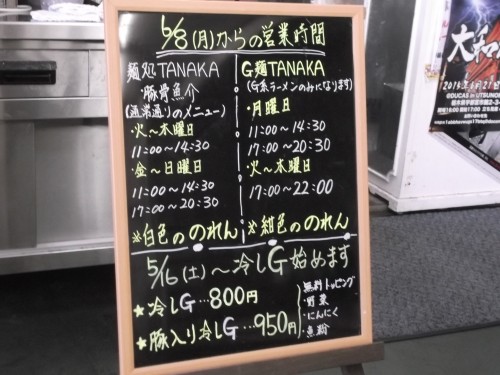 6/8(月)からの営業時間
麺処TANAKA
・豚骨魚介
(通常通りのメニュー)
・火〜木曜日
11:00〜14:30
・金〜日曜日
11:00〜14:30
17:00〜20:30
※白色ののれん
G麺TANAKA
(G系ラーメンのみになります)
・月曜日
11:00〜14:30
17:00〜20:30
・火〜木曜日
17:00〜22:00
※紺色ののれん
5/16(土)〜冷しG始めます
★冷しG…800円
★豚入り冷しG…950円
無料トッピング
・野菜
・にんにく
・魚粉
大和